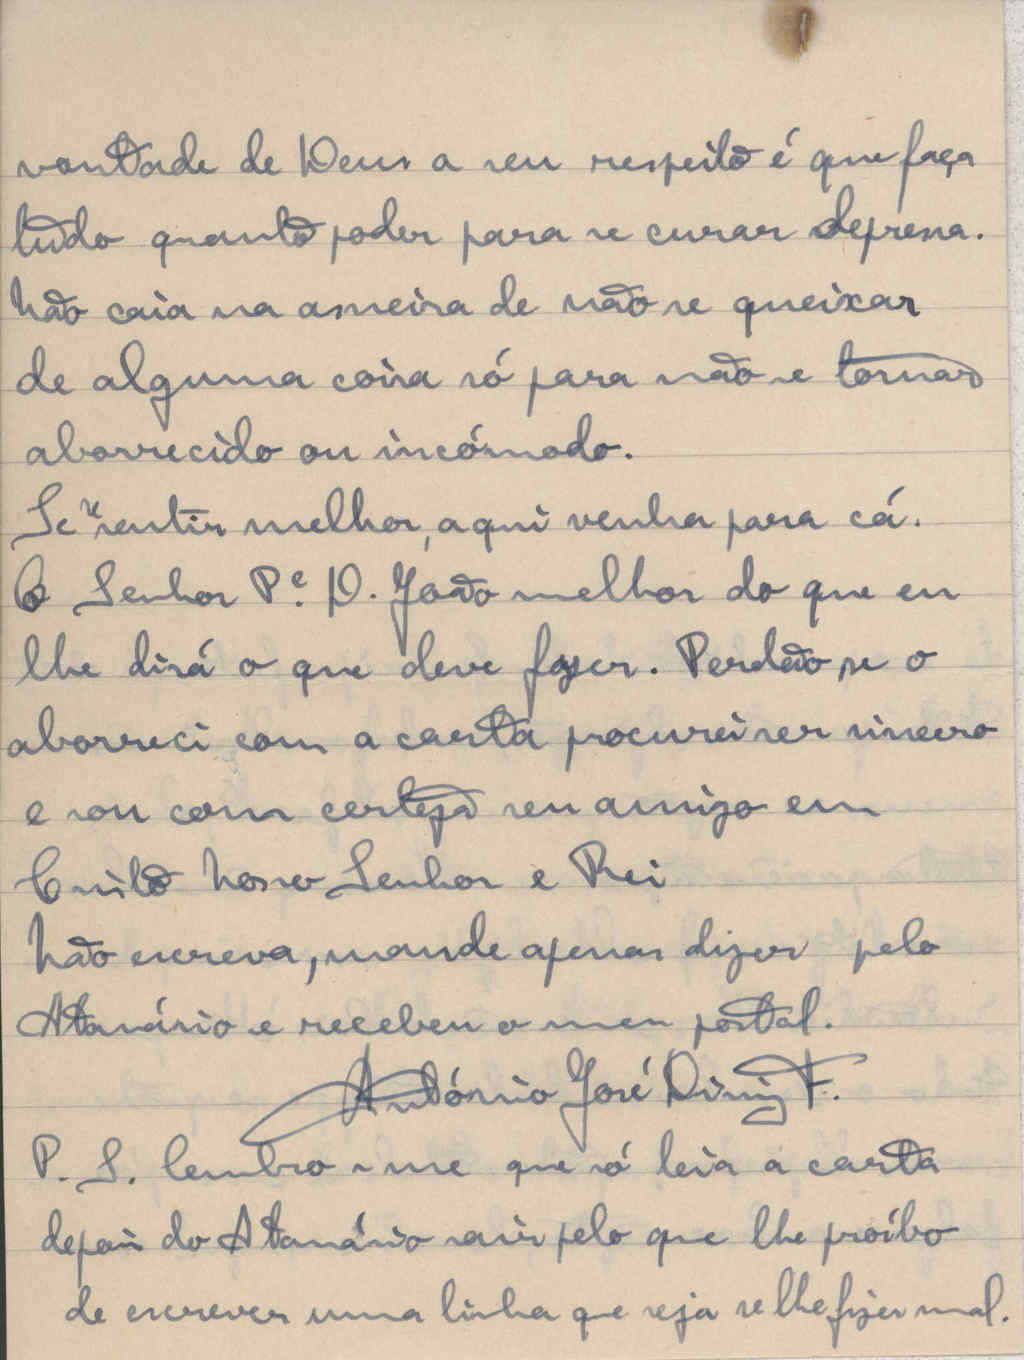 vontade de Deus a seu respeito é que faça
tudo quanto poder para se curar depressa.
Não caia na asneira de não se queixar
de alguma coisa só para não se tornar
aborrecido ou incómodo.
Se se sentir melhor, aqui venha para cá.
O Senhor P.e D. João melhor do que eu
lhe dirá o que deve fazer. Perdão se o
aborreci com a carta procurei ser sincero
e sou com certeza seu amigo em
Cristo Nosso Senhor e Rei
Não escreva, mande apenas dizer pelo
Atanásio se recebeu o meu postal.
António José Diniz F.
P. S. lembro-me que só leia a carta
depois do Atanásio sair pelo que lhe proíbo
de escrever uma linha que seja se lhe fizer mal.